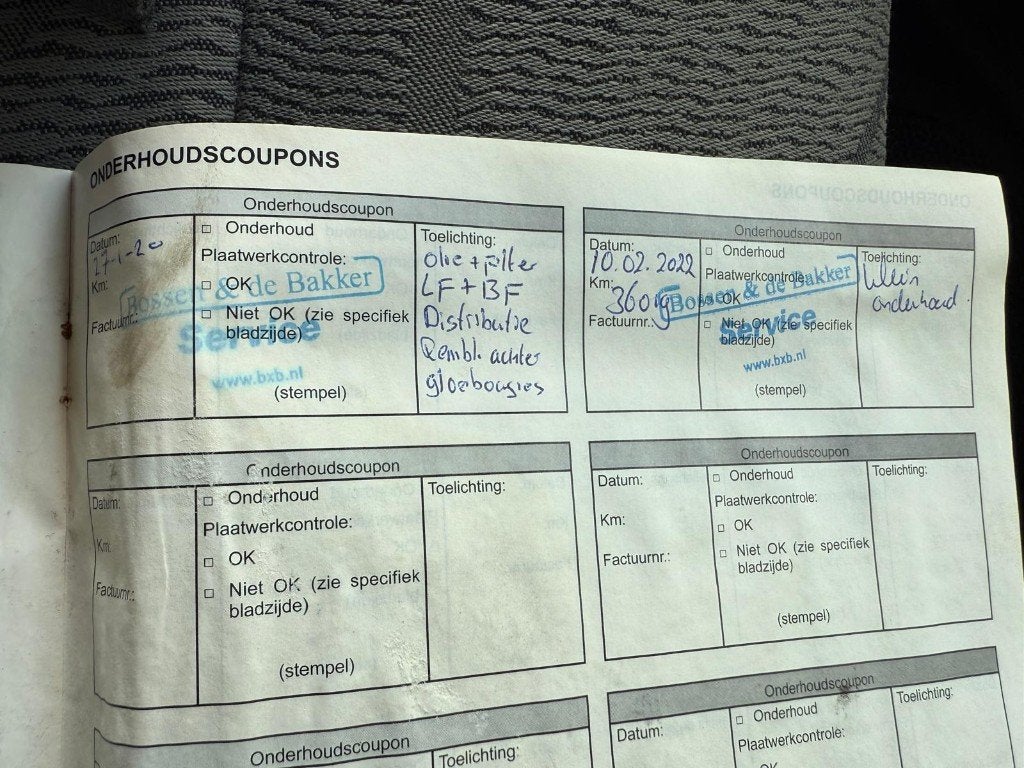 ONDERHOUDSCOUPONS
Onderhoudscoupon
Datum:
27-1-20
Km:
Factuurnr.:
□ Onderhoud
Plaatwerkcontrole:
□ OK
□ Niet OK (zie specifiek
bladzijde)
Bossen & de Bakker
Service
www.bxb.nl
(stempel)
Toelichting:
Olie + filter
LF + BF
Distributie
Rembl. achter
gloeibougies
Onderhoudscoupon
Datum:
10.02.2022
Km:
Factuurnr.:
□ Onderhoud
Plaatwerkcontrole:
□ OK
□ Niet OK (zie specifiek
bladzijde)
Bossen & de Bakker
Service
www.bxb.nl
(stempel)
Toelichting:
klein
onderhoud.
Onderhoudscoupon
Datum:
Km:
Factuurnr.:
□ Onderhoud
Plaatwerkcontrole:
□ OK
□ Niet OK (zie specifiek
bladzijde)
(stempel)
Toelichting:
Onderhoudscoupon
Datum:
Km:
Factuurnr.:
□ Onderhoud
Plaatwerkcontrole:
□ OK
□ Niet OK (zie specifiek
bladzijde)
(stempel)
Toelichting:
Onderhoudscoupon
Toelichting:
Onderhoudscoupon
Datum:
□ Onderhoud
Plaatwerkcontrole:
OK
Toelichting: